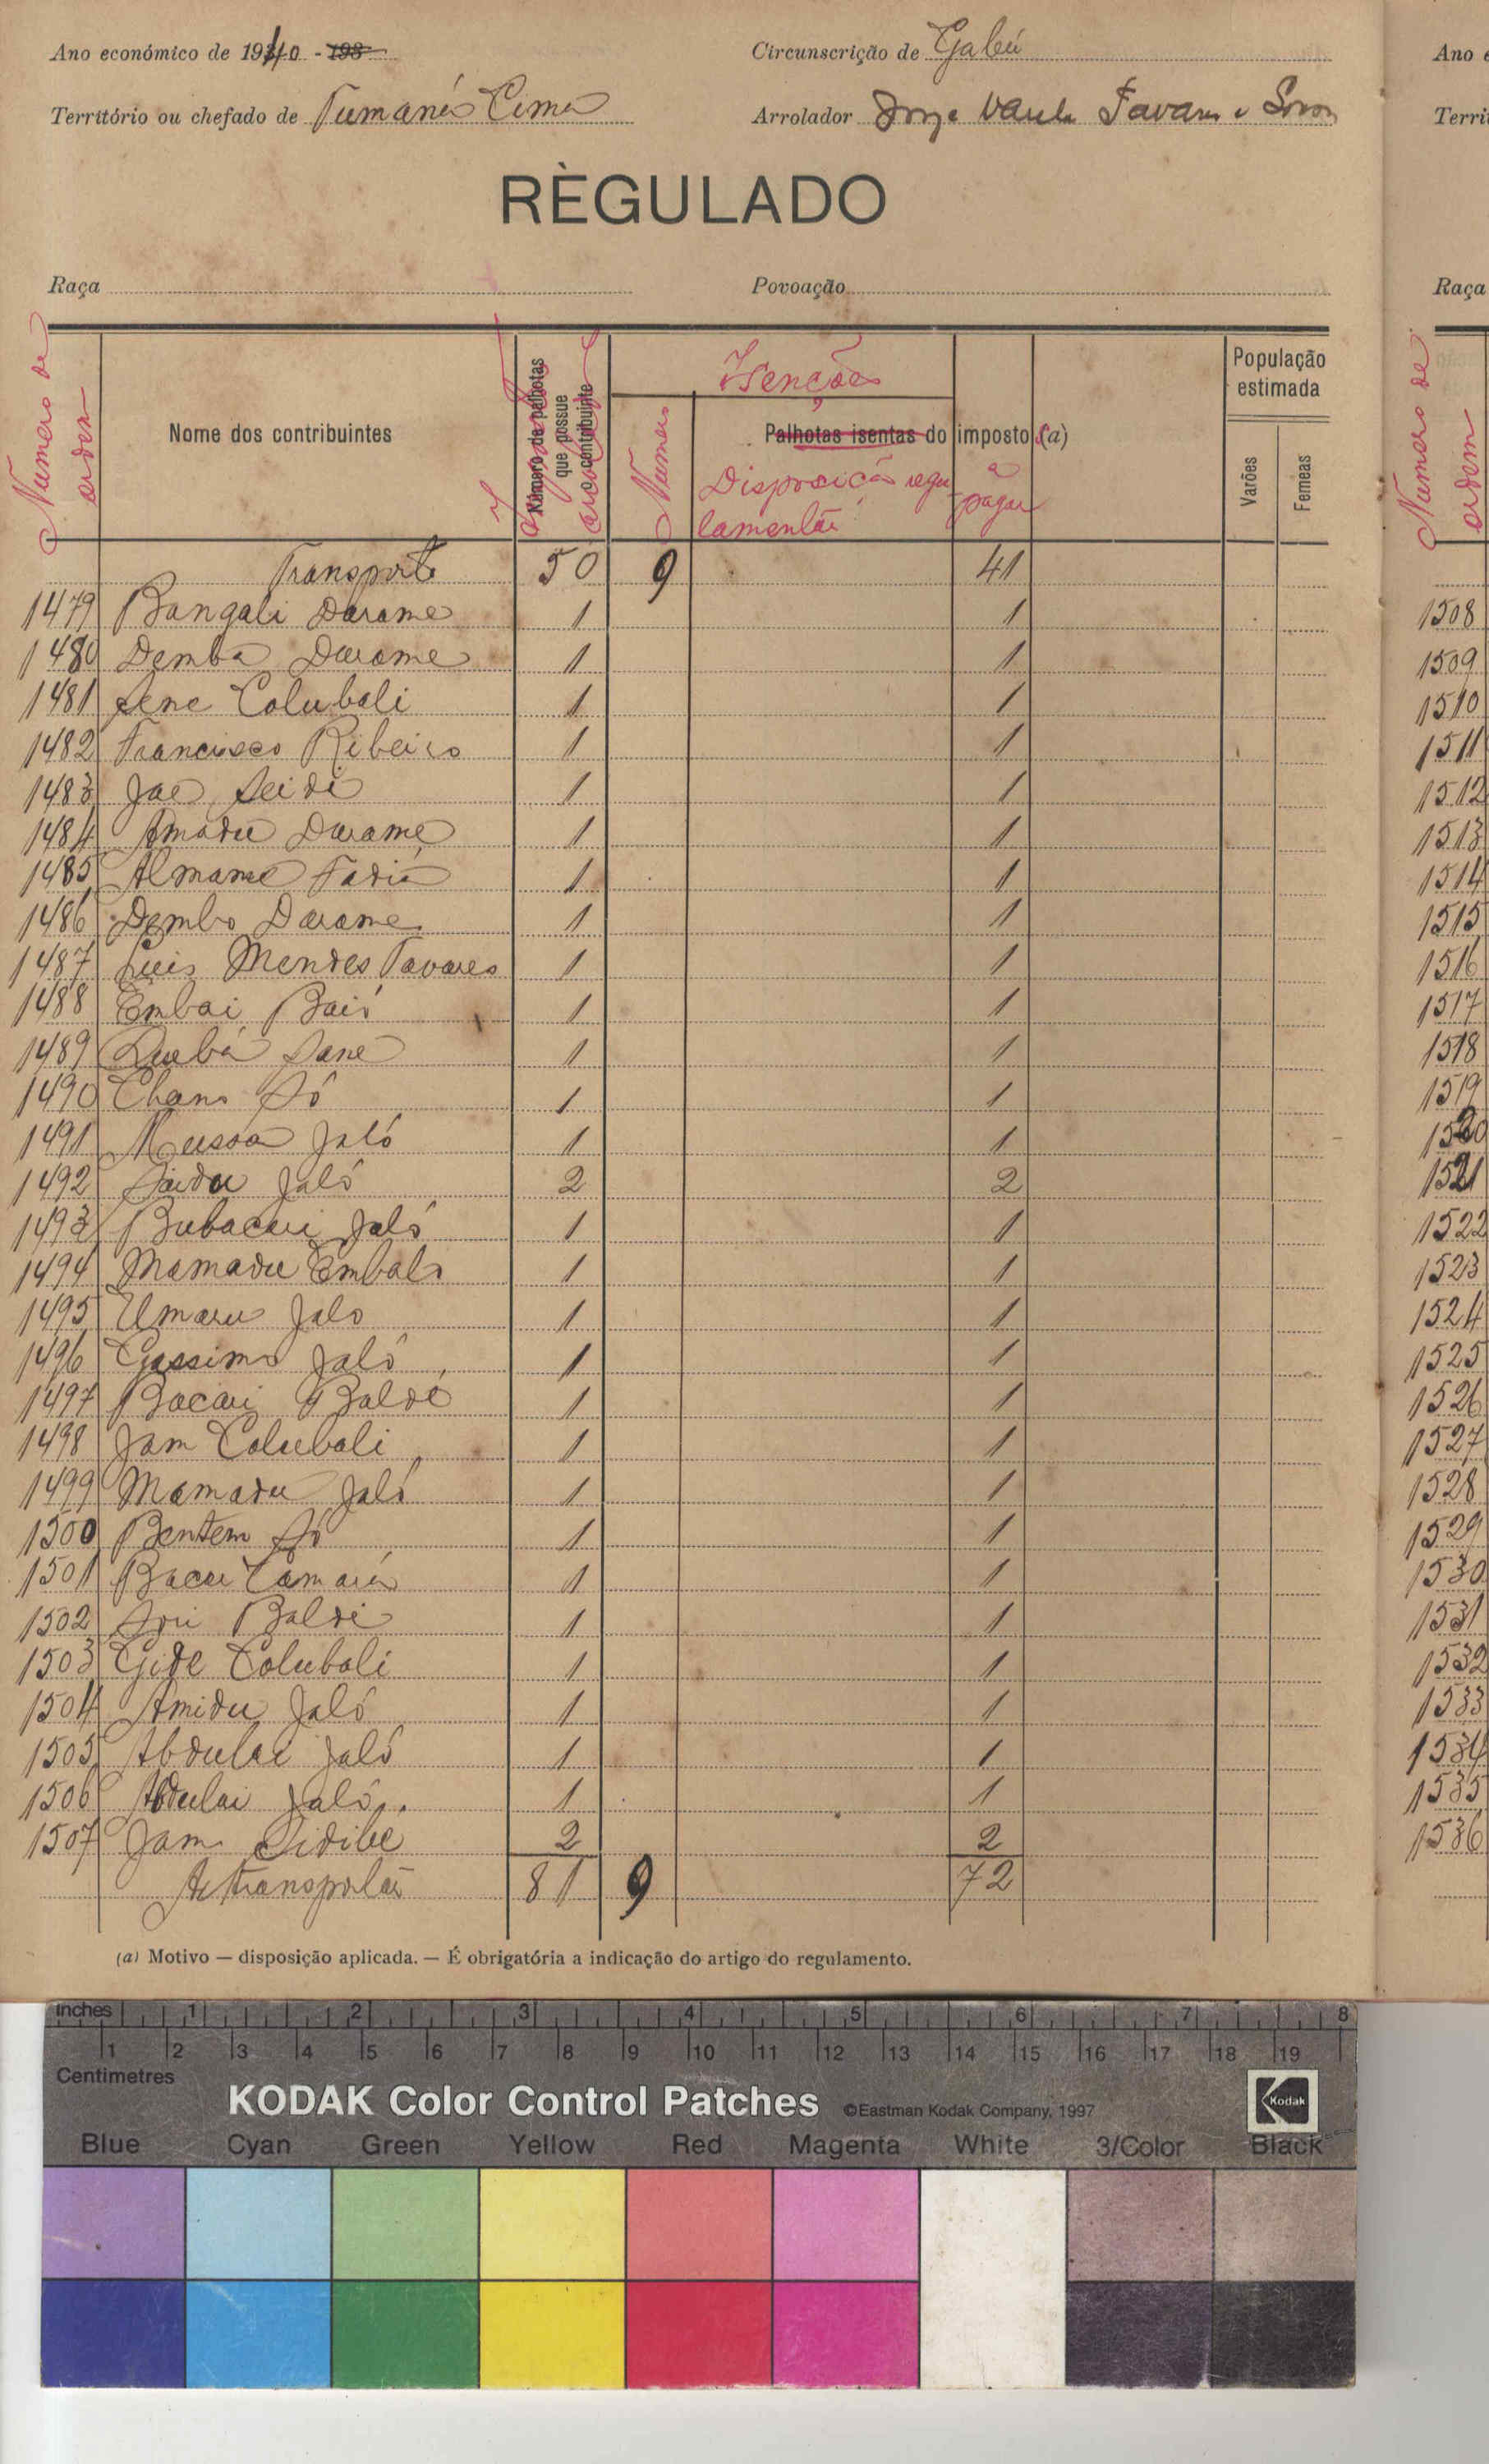 Ano económico de 1940 - 193
Circunscrição de Gabú
Território ou chefado de Tumaná Cima
Arrolador Jorge Tavares e
RÈGULADO
Raça
Povoação
Numero de ordem
Nome dos contribuintes
Número de palhotas que possue o contribuinte
Isenções
Numero
Palhotas isentas do imposto (a)
Disposição regulamentar
a pagar
População estimada
Varões
Femeas
Transporte 50 9 41
1479 Bangali Darame 1 1
1480 Demba Darame 1 1
1481 Sene Colubali 1 1
1482 Francisco Ribeiro 1 1
1483 Jae Seidi 1 1
1484 Amadu Darame 1 1
1485 Almame Fadiá 1 1
1486 Dembo Darame 1 1
1487 Luis Mendes Tavares 1 1
1488 Embai Baió 1 1
1489 Quebá Sane 1 1
1490 Chano Só 1 1
1491 Mussa Jaló 1 1
1492 Saidu Jaló 2 2
1493 Bubacar Jaló 1 1
1494 Mamadu Embalo 1 1
1495 Umaru Jalo 1 1
1496 Gassimo Jaló 1 1
1497 Bacari Baldé 1 1
1498 Jam Colubali 1 1
1499 Mamadu Jaló 1 1
1500 Bentem Só 1 1
1501 Bacar Camará 1 1
1502 Sori Baldé 1 1
1503 Gide Colubali 1 1
1504 Amidu Jaló 1 1
1505 Abdulai Jaló 1 1
1506 Abdulai Jaló 1 1
1507 Jam Sidibé 2 2
A transportar 81 9 72
(a) Motivo — disposição aplicada. — É obrigatória a indicação do artigo do regulamento.
Ano e
Terri
Raça
Numero de ordem
1508
1509
1510
1511
1512
1513
1514
1515
1516
1517
1518
1519
1520
1521
1522
1523
1524
1525
1526
1527
1528
1529
1530
1531
1532
1533
1534
1535
1536
inches 1 2 3 4 5 6 7 8
1 2 3 4 5 6 7 8 9 10 11 12 13 14 15 16 17 18 19
Centimetres
KODAK Color Control Patches ©Eastman Kodak Company, 1997 Kodak
Blue Cyan Green Yellow Red Magenta White 3/Color Black